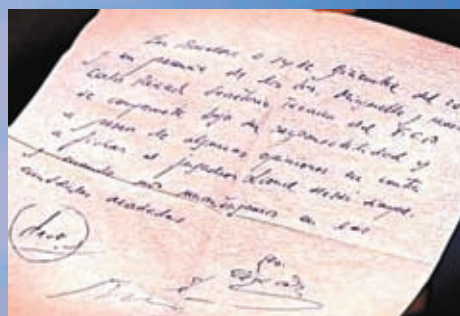 En Barcelona a 14 de Diciembre del 20
y en presencia de los Minguella y
Carles Rexach Secretario Técnico del F.C.B
se compromete bajo su responsabilidad y
a pesar de algunas opiniones en contra
a fichar al jugador Lionel Messi siempre
y cuando nos mantengamos en las
cantidades acordadas